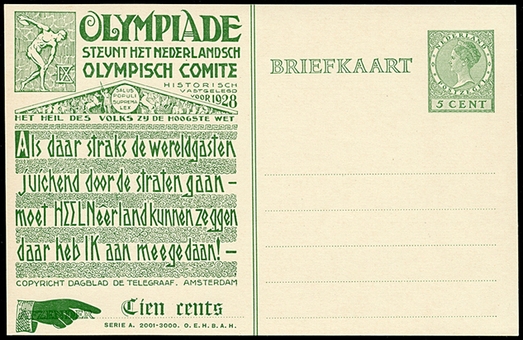 OLYMPIADE
STEUNT HET NEDERLANDSCH
OLYMPISCH COMITE
HISTORISCH
VASTGELEGD
VOOR 1928
IX
SALUS
POPULI
SUPREMA
LEX
HET HEIL DES VOLKS ZY DE HOOGSTE WET
Als daar straks de wereldgasten
juichend door de straten gaan –
moet HEEL Neerland kunnen zeggen
daar heb IK aan meegedaan! –
COPYRIGHT DAGBLAD DE TELEGRAAF. AMSTERDAM
AFZENDER
Tien cents
SERIE A. 2001-3000. O.E.H.B.A.H.
BRIEFKAART
NEDERLAND
5 CENT